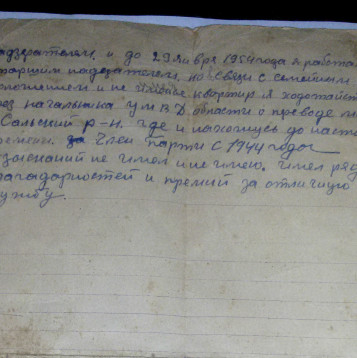 адзерателем, и до 29 января 1954 года я работа
таршим надзерателем, но связи с семейным
оложением и не имение квартир я ходотайст
рез начальника УМВД области о преводе м
Сальский р-н. где и нахожусь до насто
ремени. Член парти с 1944 годог
зысканий не имел и не имею. имел ряд
лагадарностей и премий за отличную
ужбу.